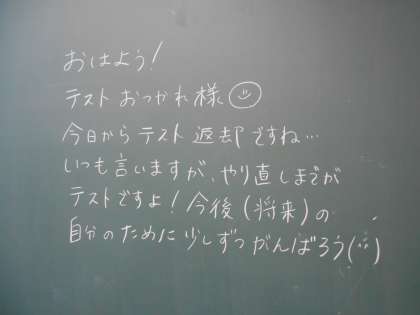 おはよう!
テストおつかれ様
今日からテスト返却ですね…
いつも言いますが、やり直しまでが
テストですよ!今後(将来)の
自分のために少しずつがんばろう(^^)